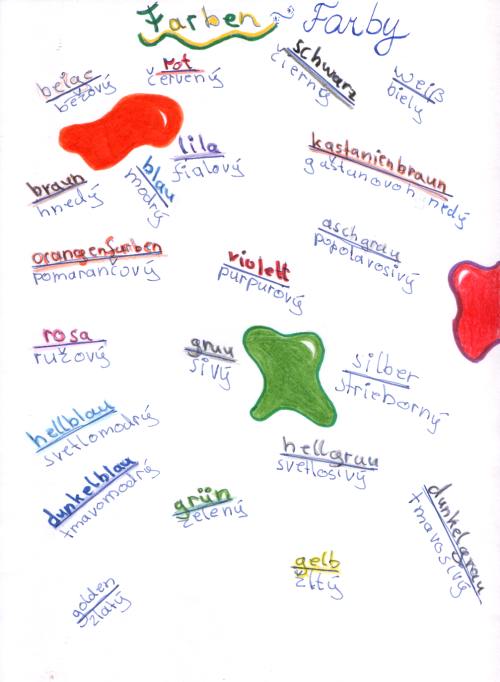 Farben ~ Farby
beige
béžový
rot
červený
schwarz
čierny
weiß
biely
lila
fialový
kastanienbraun
gaštanovohnedý
braun
hnedý
blau
modrý
aschgrau
popolavosivý
orangenfarben
pomarančový
violett
purpurový
rosa
ružový
grau
sivý
silber
strieborný
hellblau
svetlomodrý
hellgrau
svetlosivý
dunkelblau
tmavomodrý
grün
zelený
dunkelgrau
tmavosivý
gelb
žltý
golden
zlatý